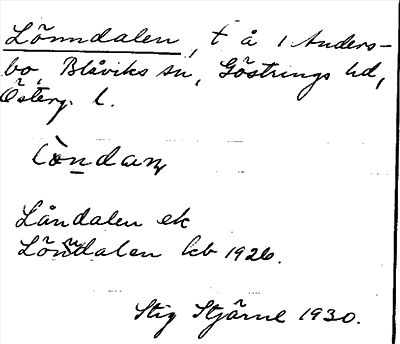 Lönndalen, t å i Anders-
bo, Blåviks sn, Göstrings hd,
Österg. l.
Låndalen ek
Lönndalen kb 1926.
Stig Stjärne 1930.